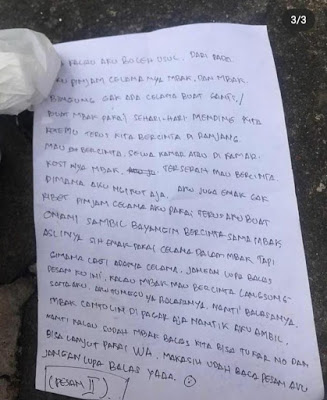 3/3
KALAU AKU BOLEH USUL. DARI PADA
AKU PINJAM CELANA NYA MBAK. DAN MBAK
BINGUNG GAK ADA CELANA BUAT GANTI /
BUAT MBAK PAKAI SEHARI-HARI MENDING KITA
KETEMU TERUS KITA BERCINTA DI RANJANG.
MAU BERCINTA. SEWA KAMAR ATAU DI KAMAR
KOST NYA MBAK. TERSERAH MAU BERCINTA
DIMANA AKU NGIKUT AJA. AKU JUGA ENAK GAK
RIBET PINJAM CELANA AKU PAKAI TERUS AKU BUAT
ONANI SAMBIL BAYANGIN BERCINTA SAMA MBAK
ASLINYA SIH ENAK PAKAI CELANA DALAM MBAK TAPI
GIMANA LAGI ADANYA CELANA. JANGAN LUPA BALAS
PESAN KU INI. KALAU MBAK MAU BERCINTA LANGSUNG
SAMA AKU. AKU TUNGGU YA BALASANYA. NANTI BALASANYA
MBAK CANTOLIN DI PAGAR AJA NANTI AKU AMBIL.
NANTI KALAU SUDAH MBAK BALAS KITA BISA TUKAR NO DAN
BISA LANJUT PAKAI WA. MAKASIH UDAH BACA PESAN AKU
JANGAN LUPA BALAS YADA.
(PESAN II)